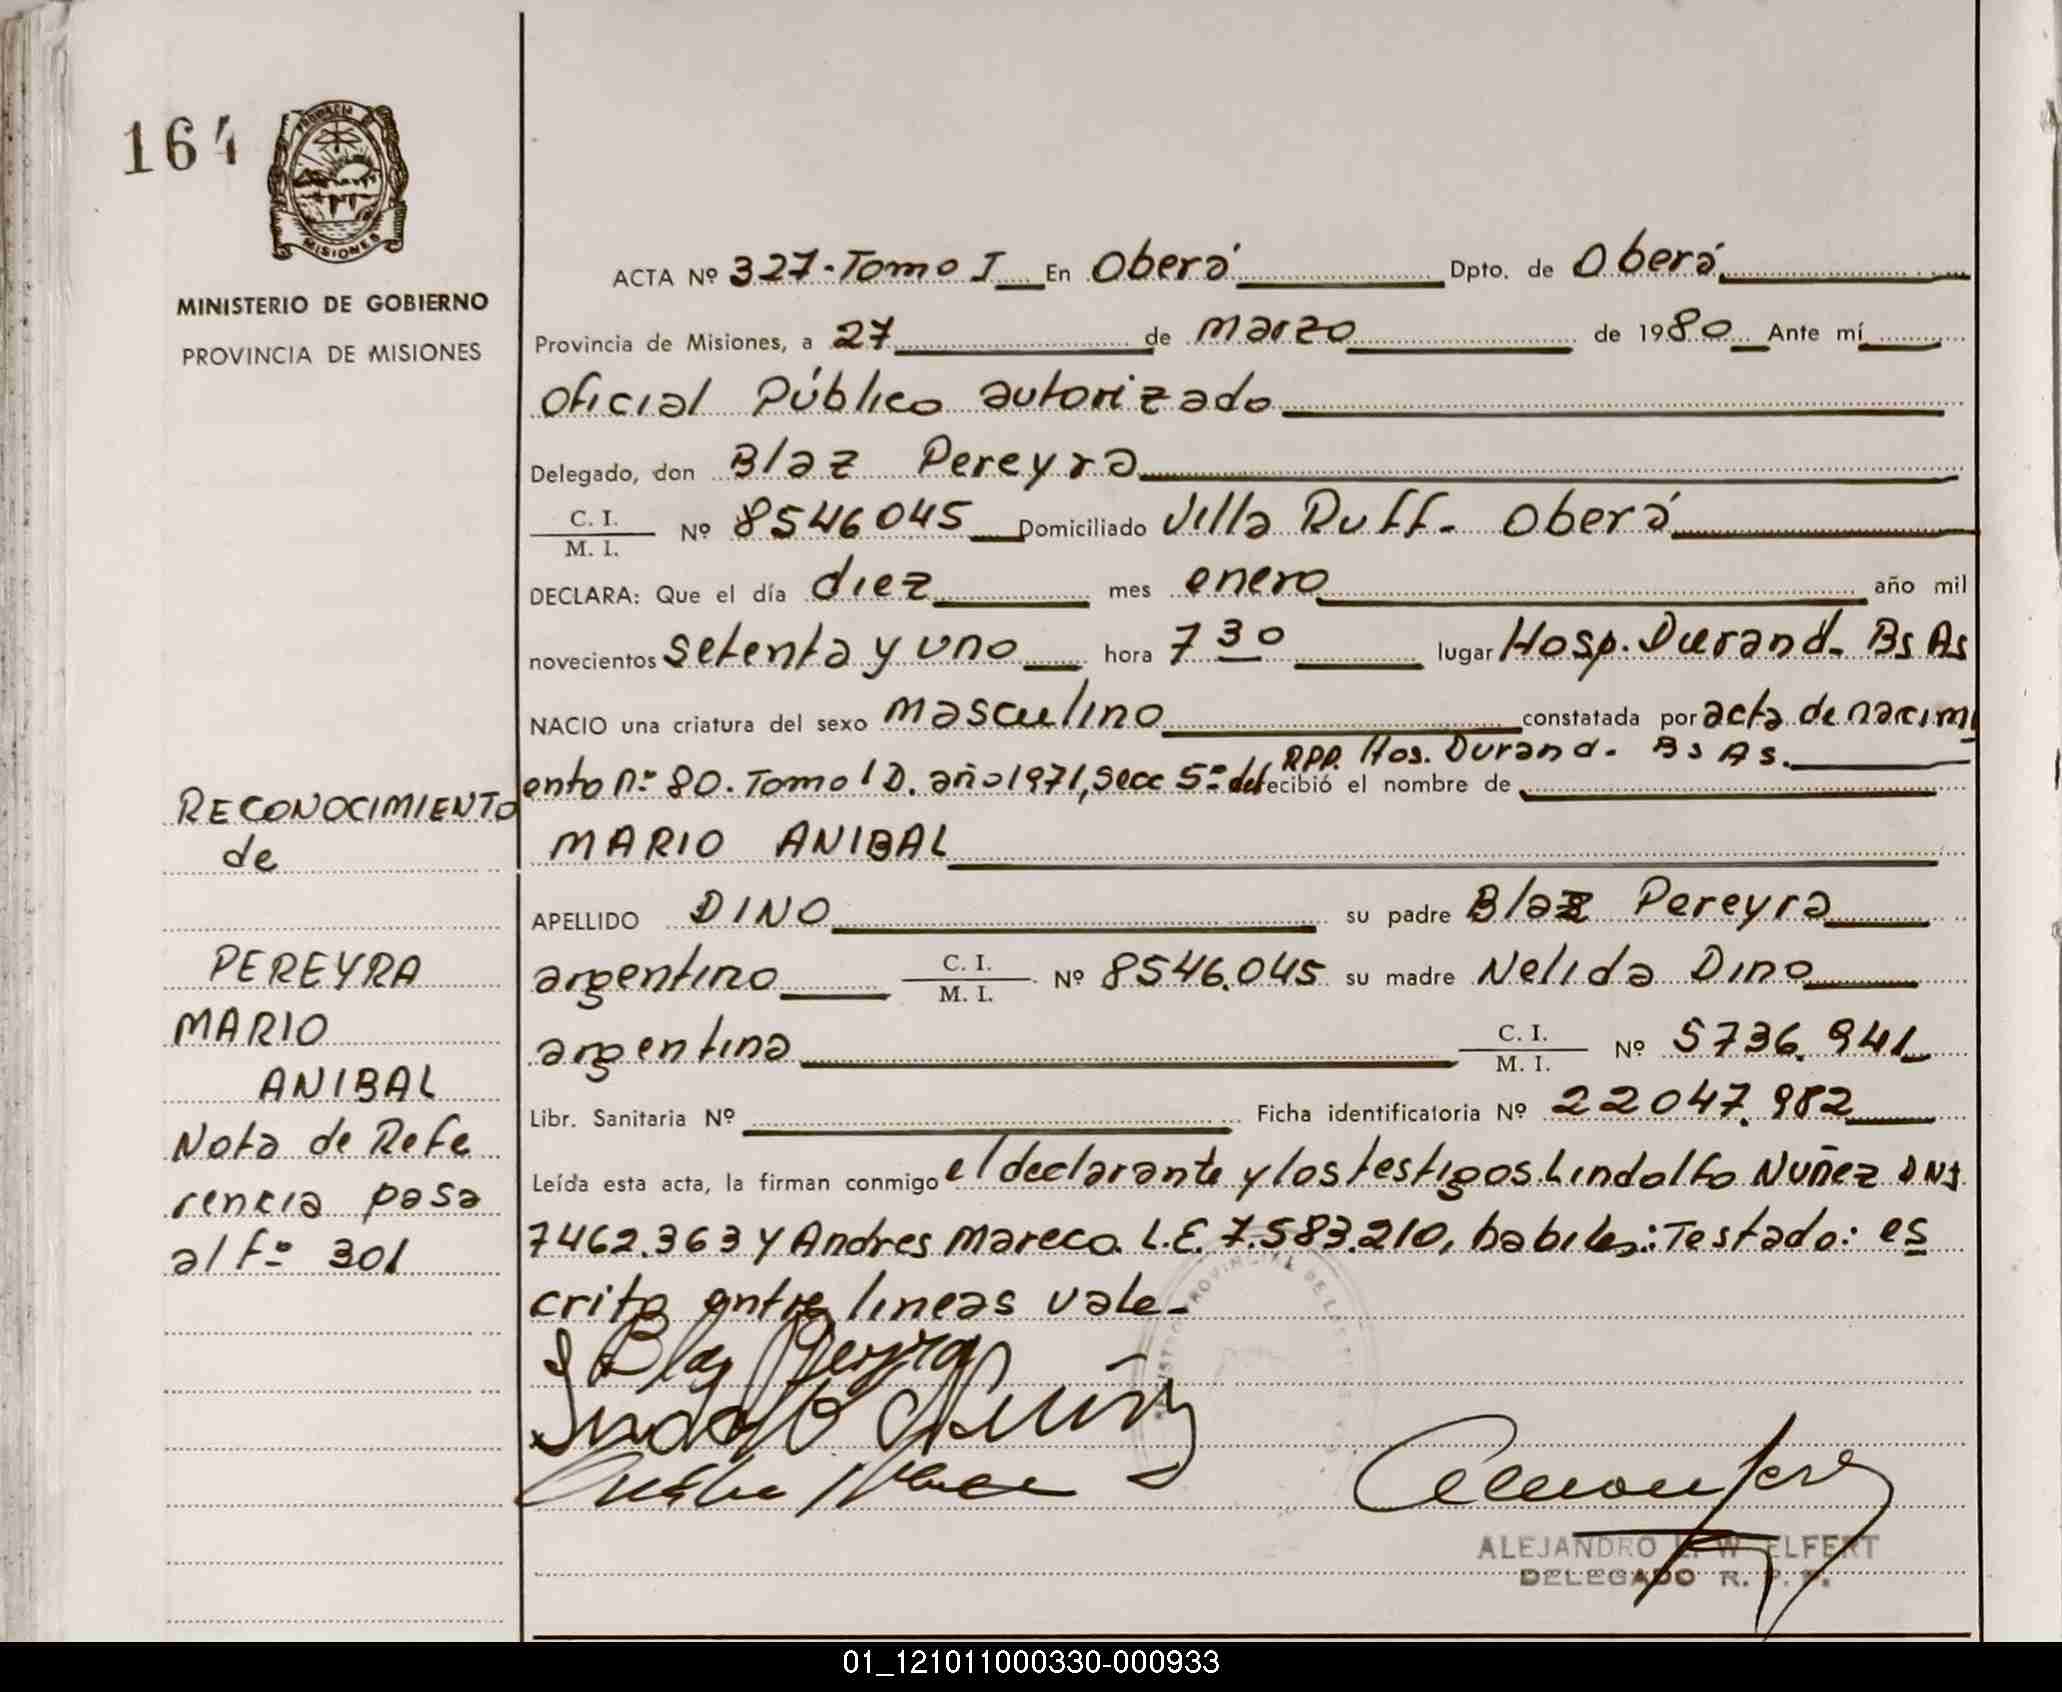 164
PROVINCIA DE
MISIONES
MINISTERIO DE GOBIERNO
PROVINCIA DE MISIONES
ACTA Nº 327-Tomo I En Oberá Dpto. de Oberá
Provincia de Misiones, a 27 de marzo de 1980 Ante mí
Oficial Público autorizado
Delegado, don Blaz Pereyra
C. I.
M. I. Nº 8546045 Domiciliado Villa Ruff. Oberá
DECLARA: Que el día diez mes enero año mil
novecientos setenta y uno hora 7 30 lugar Hosp. Durand. Bs As
NACIO una criatura del sexo masculino constatada por acta de nacimi
RPP. Hos. Durand. Bs As.
ento nº 80. Tomo 1 D. año 1971, Secc 5º del recibió el nombre de
MARIO ANIBAL
APELLIDO DINO su padre Blaz Pereyra
argentino C. I.
M. I. Nº 8546.045 su madre Nelida Dino
argentina C. I.
M. I. Nº 5736.941
Libr. Sanitaria Nº Ficha identificatoria Nº 22047.982
Leída esta acta, la firman conmigo el declarante y los testigos Lindolfo Nuñez DNI.
7462.363 y Andres Mareco. L.E. 7.583.210, habiles: Testado: es
crito entre lineas vale-
RECONOCIMIENTO
de
PEREYRA
MARIO
ANIBAL
Nota de Refe
rencia pasa
al Fº 301
Blas Pereyra
Lindolfo Nuñez
ALEJANDRO L. W. ELFERT
DELEGADO R. P. P.
01_121011000330-000933